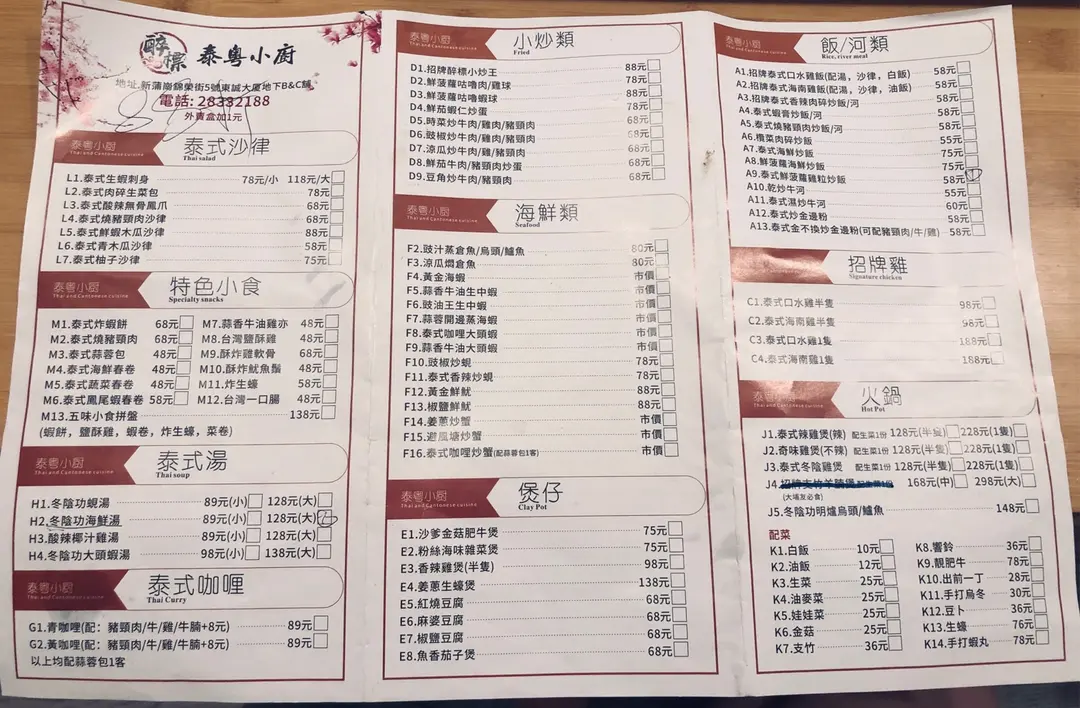 醉標 泰粵小廚
地址.新蒲崗錦榮街5號東誠大廈地下B&C舖
電話: 28332188
外賣盒加1元
泰粵小廚
Thai and Cantonese cuisine
泰式沙律
Thai salad
L1.泰式生蝦刺身 78元/小 118元/大
L2.泰式肉碎生菜包 78元
L3.泰式酸辣無骨鳳爪 68元
L4.泰式燒豬頸肉沙律 68元
L5.泰式鮮蝦木瓜沙律 88元
L6.泰式青木瓜沙律 58元
L7.泰式柚子沙律 75元
泰粵小廚
Thai and Cantonese cuisine
特色小食
Specialty snacks
M1.泰式炸蝦餅 68元 M7.蒜香牛油雞亦 48元
M2.泰式燒豬頸肉 68元 M8.台灣鹽酥雞 48元
M3.泰式蒜蓉包 48元 M9.酥炸雞軟骨 68元
M4.泰式海鮮春卷 48元 M10.酥炸魷魚鬚 48元
M5.泰式蔬菜春卷 48元 M11.炸生蠔 58元
M6.泰式鳳尾蝦春卷 58元 M12.台灣一口腸 48元
M13.五味小食拼盤 138元
(蝦餅，鹽酥雞，蝦卷，炸生蠔，菜卷)
泰粵小廚
Thai and Cantonese cuisine
泰式湯
Thai soup
H1.冬陰功蜆湯 89元(小) 128元(大)
H2.冬陰功海鮮湯 89元(小) 128元(大)
H3.酸辣椰汁雞湯 89元(小) 128元(大)
H4.冬陰功大頭蝦湯 98元(小) 138元(大)
泰粵小廚
Thai and Cantonese cuisine
泰式咖喱
Thai Curry
G1.青咖喱(配：豬頸肉/牛/雞/牛腩+8元) 89元
G2.黃咖喱(配：豬頸肉/牛/雞/牛腩+8元) 89元
以上均配蒜蓉包1客
泰粵小廚
Thai and Cantonese cuisine
小炒類
Fried
D1.招牌醉標小炒王 88元
D2.鮮菠蘿咕嚕肉/雞球 78元
D3.鮮菠蘿咕嚕蝦球 88元
D4.鮮茄蝦仁炒蛋 78元
D5.時菜炒牛肉/雞肉/豬頸肉 68元
D6.豉椒炒牛肉/雞肉/豬頸肉 68元
D7.涼瓜炒牛肉/雞/豬頸肉 68元
D8.鮮茄牛肉/豬頸肉炒蛋 68元
D9.豆角炒牛肉/豬頸肉 68元
泰粵小廚
Thai and Cantonese cuisine
海鮮類
Seafood
F2.豉汁蒸倉魚/烏頭/鱸魚 80元
F3.涼瓜燜倉魚 80元
F4.黃金海蝦 市價
F5.蒜香牛油生中蝦 市價
F6.豉油王生中蝦 市價
F7.蒜蓉開邊蒸海蝦 市價
F8.泰式咖喱大頭蝦 市價
F9.蒜香牛油大頭蝦 市價
F10.豉椒炒蜆 78元
F11.泰式香辣炒蜆 78元
F12.黃金鮮魷 88元
F13.椒鹽鮮魷 88元
F14.姜蔥炒蟹 市價
F15.避風塘炒蟹 市價
F16.泰式咖喱炒蟹(配蒜蓉包1客) 市價
泰粵小廚
Thai and Cantonese cuisine
煲仔
Clay Pot
E1.沙爹金菇肥牛煲 75元
E2.粉絲海味雜菜煲 75元
E3.香辣雞煲(半隻) 98元
E4.姜蔥生蠔煲 138元
E5.紅燒豆腐 68元
E6.麻婆豆腐 68元
E7.椒鹽豆腐 68元
E8.魚香茄子煲 68元
泰粵小廚
Thai and Cantonese cuisine
飯/河類
Rice, river meat
A1.招牌泰式口水雞飯(配湯，沙律，白飯) 58元
A2.招牌泰式海南雞飯(配湯，沙律，油飯) 58元
A3.招牌泰式香辣肉碎炒飯/河 58元
A4.泰式蝦膏炒飯/河 58元
A5.泰式燒豬頸肉炒飯/河 58元
A6.欖菜肉碎炒飯 55元
A7.泰式海鮮炒飯 75元
A8.鮮菠蘿海鮮炒飯 75元
A9.泰式鮮菠蘿雞粒炒飯 58元
A10.乾炒牛河 55元
A11.泰式濕炒牛河 60元
A12.泰式炒金邊粉 58元
A13.泰式金不換炒金邊粉(可配豬頸肉/牛/雞) 58元
泰粵小廚
Thai and Cantonese cuisine
招牌雞
Signature chicken
C1.泰式口水雞半隻 98元
C2.泰式海南雞半隻 98元
C3.泰式口水雞1隻 188元
C4.泰式海南雞1隻 188元
泰粵小廚
Thai and Cantonese cuisine
火鍋
Hot Pot
J1.泰式辣雞煲(辣) 配生菜1份 128元(半隻) 228元(1隻)
J2.奇味雞煲(不辣) 配生菜1份 128元(半隻) 228元(1隻)
J3.泰式冬陰雞煲 配生菜1份 128元(半隻) 228元(1隻)
J4.招牌支竹羊腩煲 配生菜1份 168元(中) 298元(大)
(大埔友必食)
J5.冬陰功明爐烏頭/鱸魚 148元
配菜
K1.白飯 10元 K8.響鈴 36元
K2.油飯 12元 K9.靚肥牛 78元
K3.生菜 25元 K10.出前一丁 28元
K4.油麥菜 25元 K11.手打烏冬 30元
K5.娃娃菜 25元 K12.豆卜 36元
K6.金菇 25元 K13.生蠔 76元
K7.支竹 36元 K14.手打蝦丸 78元